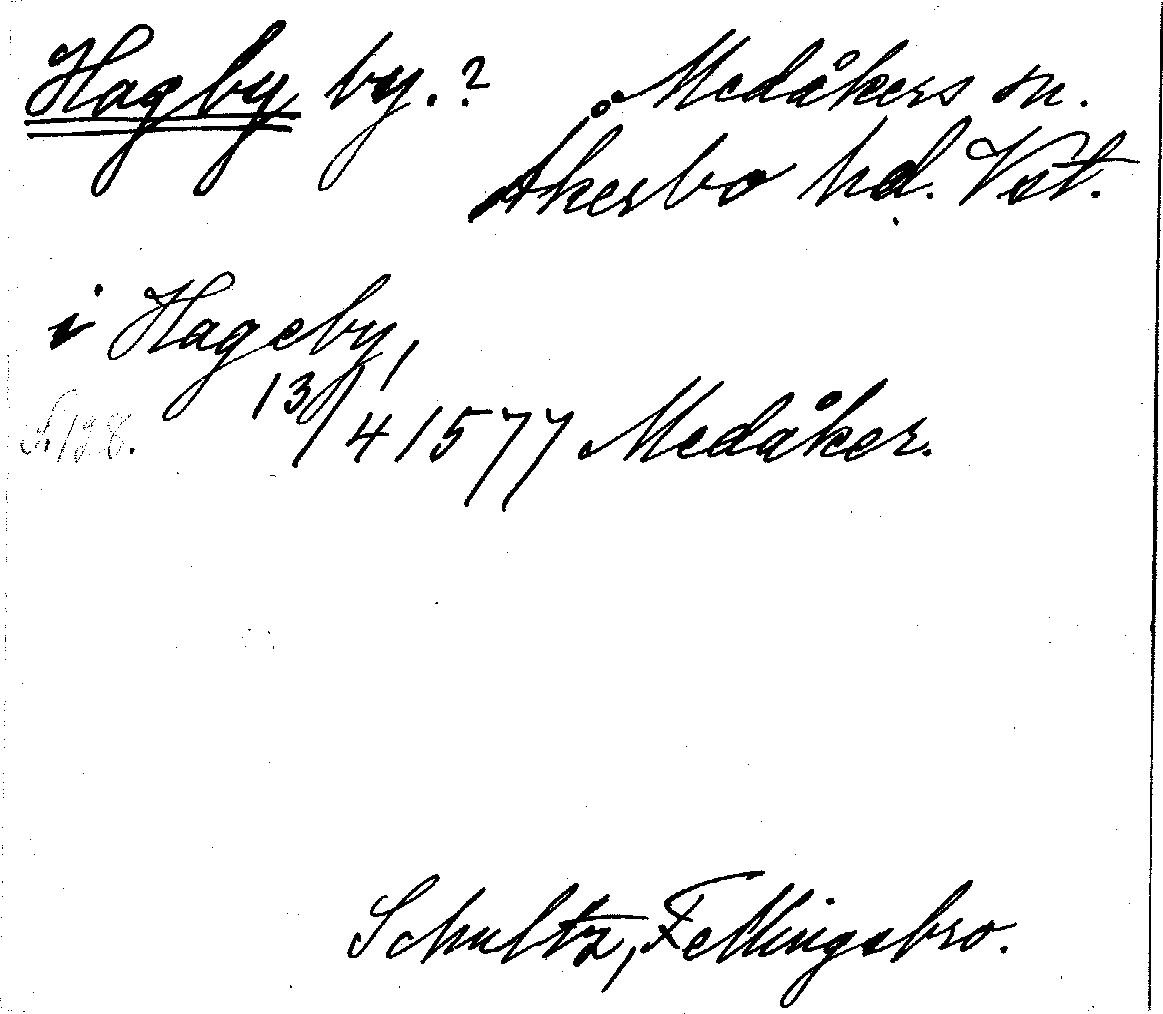 Hagby by.? Medåkers sn.
Åkerbo hd. Vst.
i Hageby,
13/4 1577 Medåker.
Schultz, Fellingsbro.